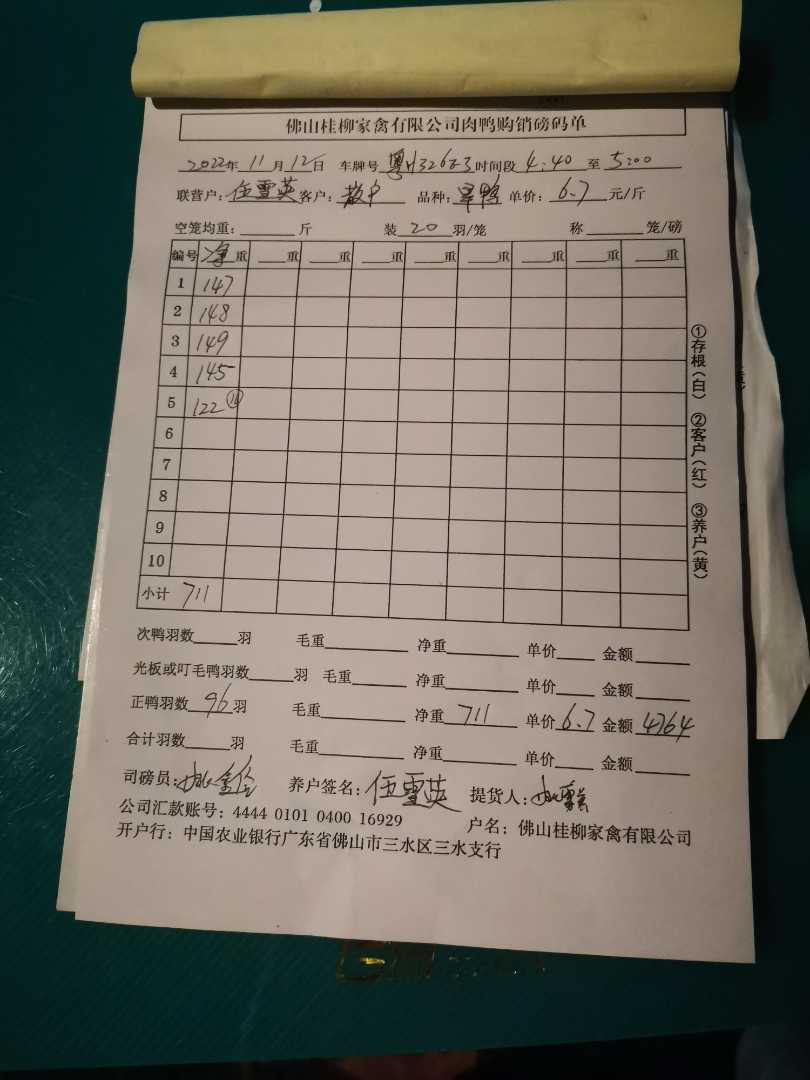 佛山桂柳家禽有限公司肉鸭购销磅码单
2022年 11月 12日 车牌号 粤 时间段 4:40 至 5:00
联营户:伍雪英 客户:散户 品种: 单价:6.7 元/斤
空笼均重:______斤 装 20 羽/笼 称______笼/磅
编号 净重 ___重 ___重 ___重 ___重 ___重 ___重 ___重 ___重
1 147
2 148
3 149
4 145
5 122 ⑯
6
7
8
9
10
小计 711
次鸭羽数______羽 毛重______ 净重______ 单价____ 金额______
光板或叮毛鸭羽数______羽 毛重______ 净重______ 单价____ 金额______
正鸭羽数 96 羽 毛重______ 净重 711 单价 6.7 金额 4764
合计羽数______羽 毛重______ 净重______ 单价____ 金额______
司磅员: 养户签名:伍雪英 提货人:
公司汇款账号:4444 0101 0400 16929 户名:佛山桂柳家禽有限公司
开户行:中国农业银行广东省佛山市三水区三水支行
①存根(白) ②客户(红) ③养户(黄)